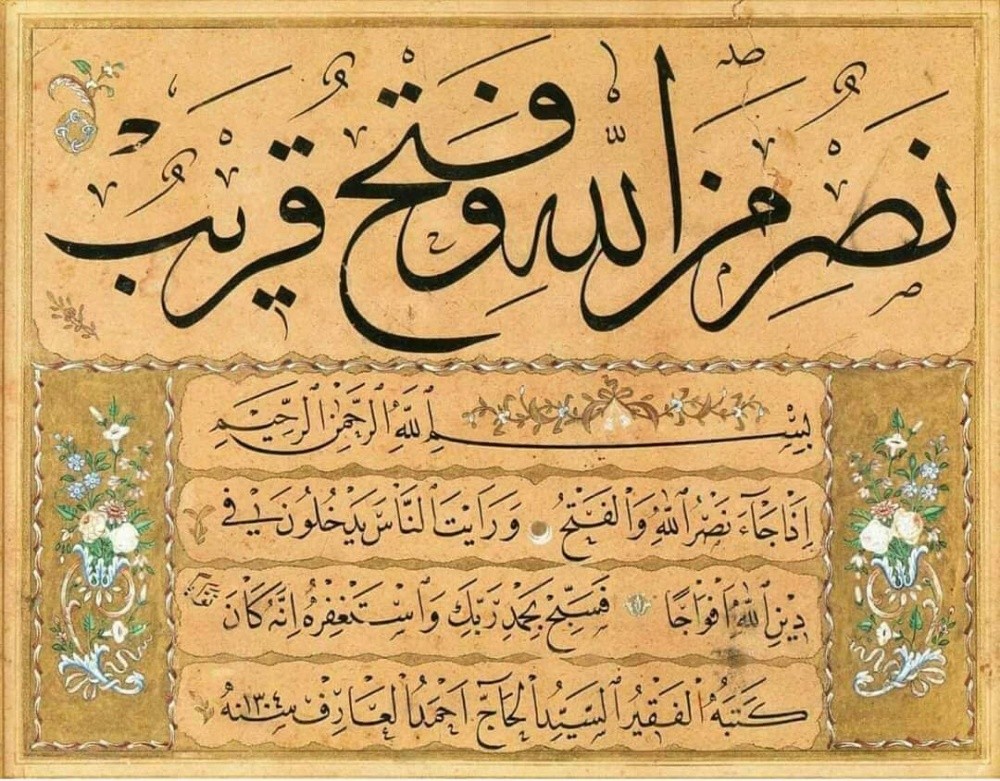 نَصْرٌ مِنَ اللّٰهِ وَفَتْحٌ قَرِيبٌ
بِسْمِ اللّٰهِ الرَّحْمٰنِ الرَّحِيمِ
اِذَا جَآءَ نَصْرُ اللّٰهِ وَالْفَتْحُ وَرَاَيْتَ النَّاسَ يَدْخُلُونَ فِي
دِينِ اللّٰهِ اَفْوَاجًا فَسَبِّحْ بِحَمْدِ رَبِّكَ وَاسْتَغْفِرْهُ اِنَّهُ كَانَ تَوَّابًا
كَتَبَهُ الْفَقِيرُ السَّيِّدُ الْحَاجّ اَحْمَدُ الْعَارِفْ سنه ١٣٠٤